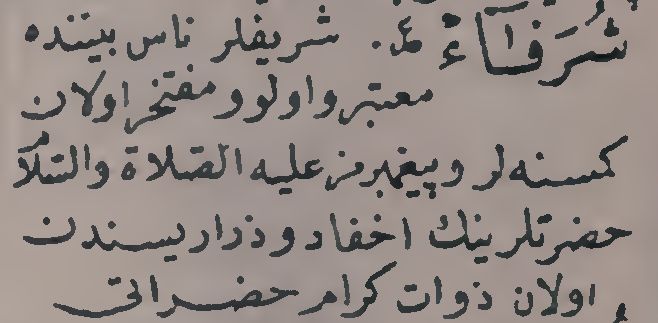 شُرَفَآءْ ع. شريفلر ناس بيننده
معتبر و اولو و مفتخر اولان
كمسنه لر و پيغمبرمز عليه الصلاة والسلام
حضرتلرينك احفاد و ذراريسندن
اولان ذوات كرام حضراتى